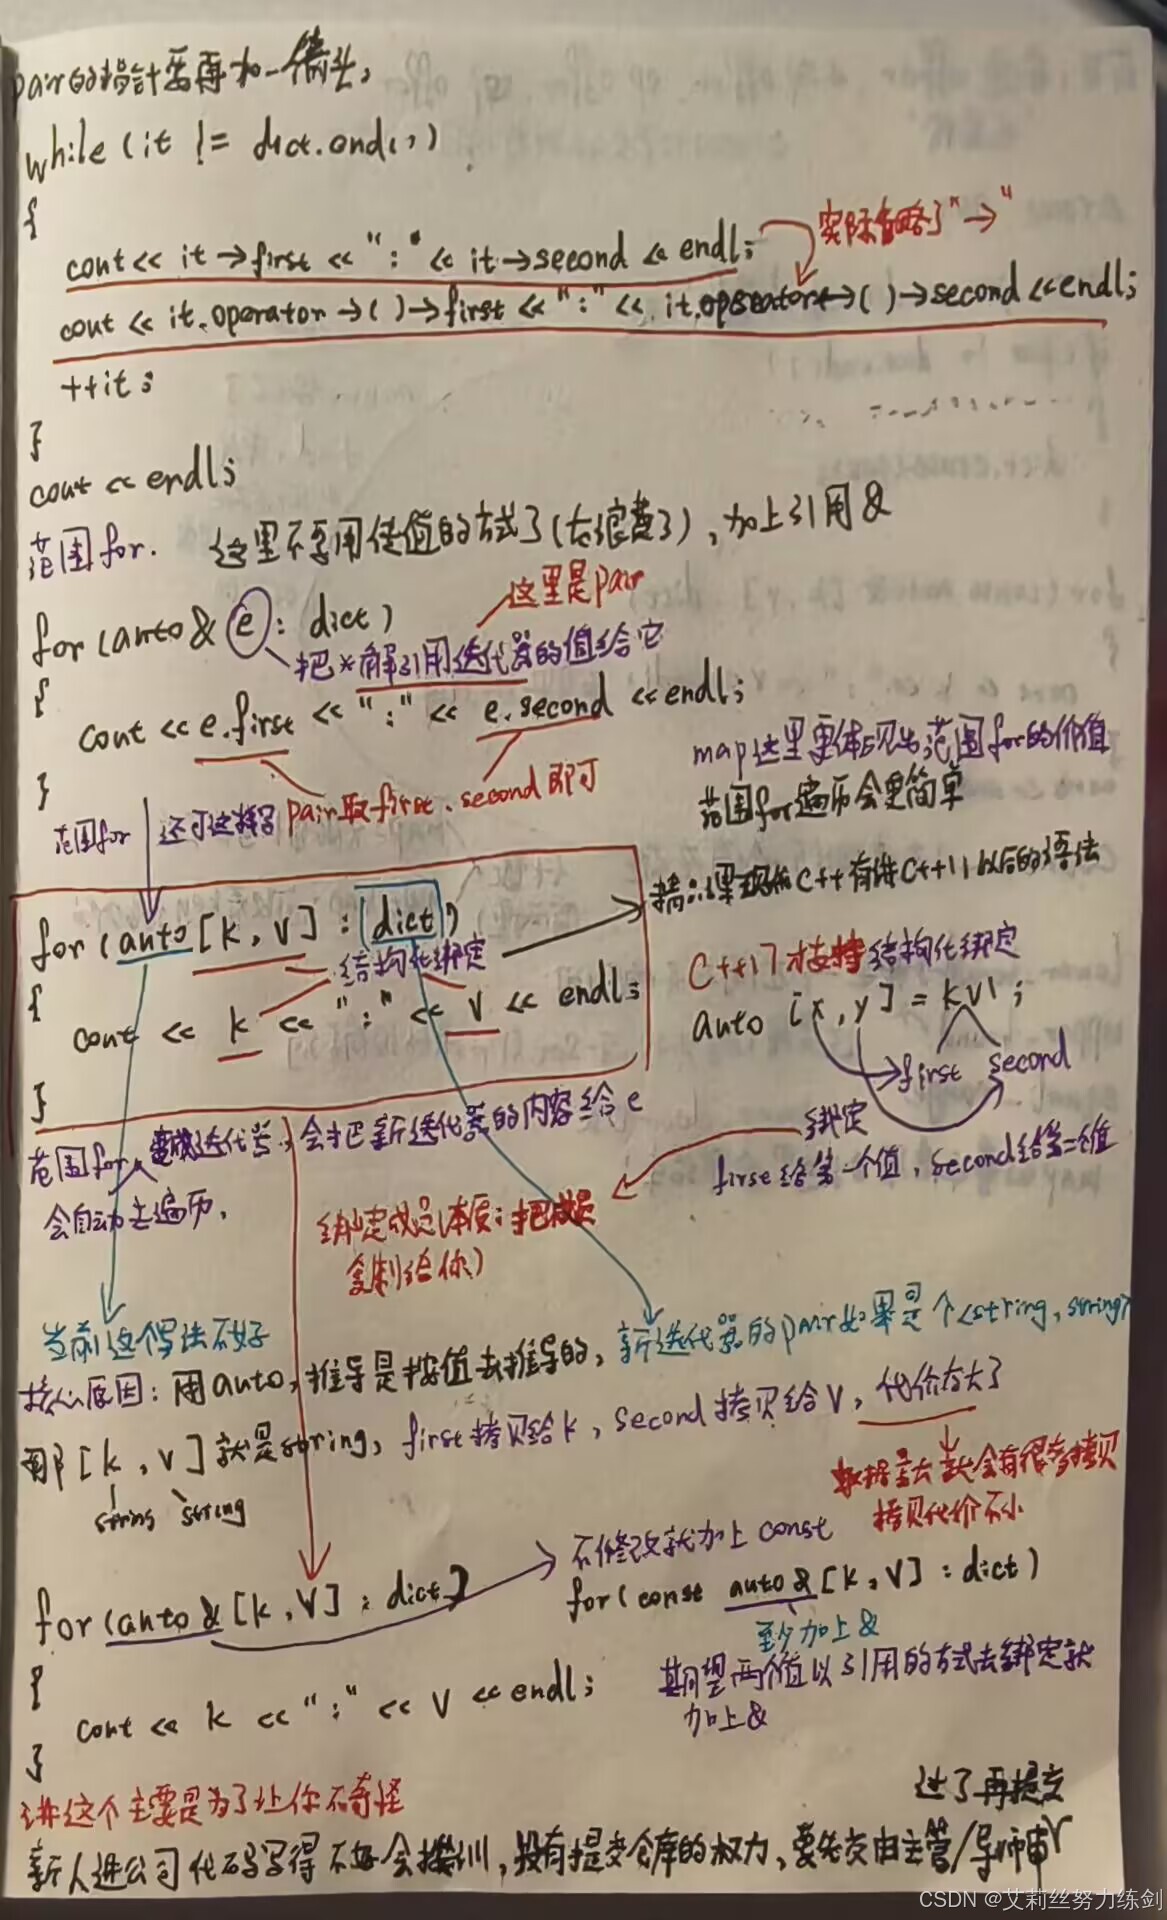 pair的指针需再加一箭头,
while (it != dict.end())
{
cout << it->first << ":" << it->second << endl;
实际省略了"->"
cout << it.operator->()->first << ":" << it.operator->()->second << endl;
++it;
}
cout << endl;
范围for. 这里不要用传值的方式了(太浪费了),加上引用&
这里是pair
for (auto& e : dict)
把*解引用迭代器的值给它
{
cout << e.first << ":" << e.second << endl;
}
pair取first、second即可
map这里更体现出范围for的价值
范围for遍历会更简单
范围for 还可这样写
for (auto [k, v] : dict)
结构化绑定
{
cout << k << ":" << v << endl;
}
C++有讲C++11以后的语法
C++17才支持结构化绑定
auto [x, y] = kv1;
first second
绑定
first给第一个值,second给第二个值
范围for 迭代器,会把新迭代器的内容给e
会自动去遍历.
绑定成员(本质:把成员
复制给你)
当前这个写法不好
新迭代器的pair如果是个<string, string>
核心原因:用auto,推导是按值去推导的,
那[k, v]就是string, first拷贝给k, second拷贝给v, 代价太大了
string string
数据量大就会有很多拷贝
拷贝代价不小
不修改就加上const
for (auto& [k, v] : dict)
for (const auto& [k, v] : dict)
至少加上&
{
期望两个值以引用的方式去绑定就
加上&
cout << k << ":" << v << endl;
}
讲这个主要是为了让你不奇怪
过了再提交
新人进公司代码写得不好会挨训,没有提交仓库的权力,要先交由主管/导师审
CSDN @艾莉丝努力练剑